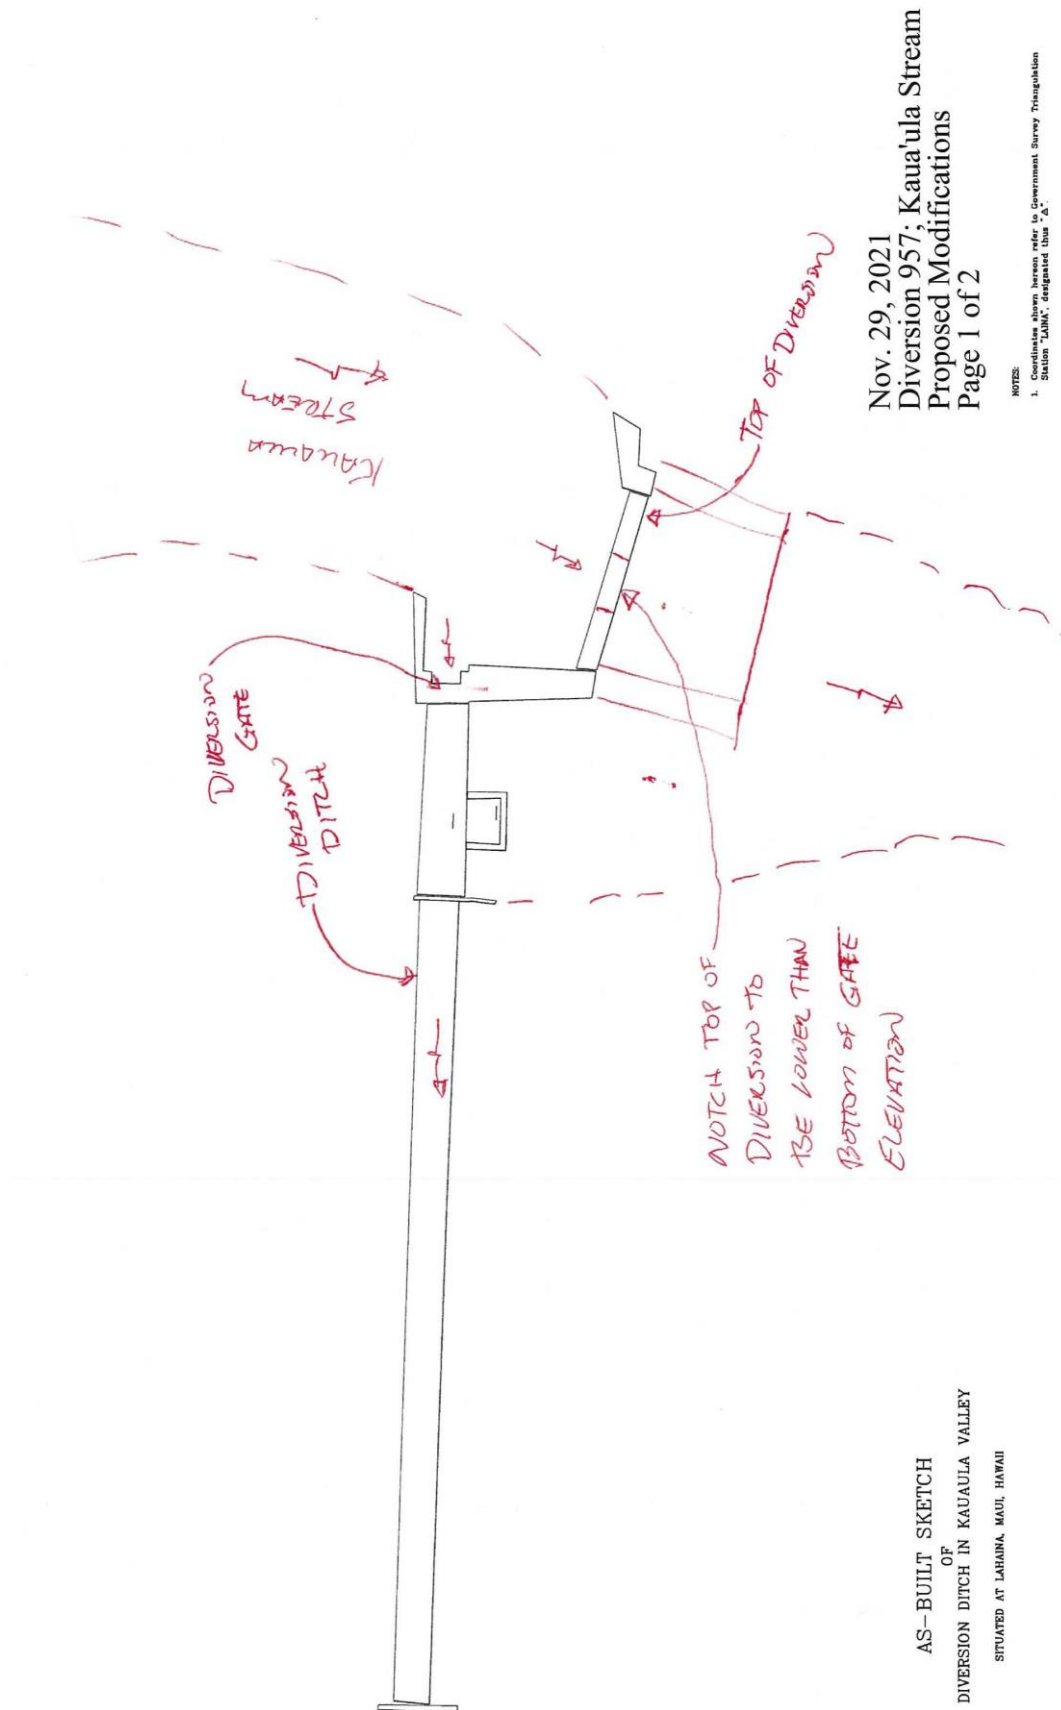 KAUAULA
STREAM
DIVERSION
GATE
DIVERSION
DITCH
TOP OF DIVERSION
NOTCH TOP OF
DIVERSION TO
BE LOWER THAN
BOTTOM OF GATE
ELEVATION
Nov. 29, 2021
Diversion 957; Kaua'ula Stream
Proposed Modifications
Page 1 of 2
NOTES:
1. Coordinates shown hereon refer to Government Survey Triangulation
Station "LAINA", designated thus "△".
AS-BUILT SKETCH
OF
DIVERSION DITCH IN KAUAULA VALLEY
SITUATED AT LAHAINA, MAUI, HAWAII